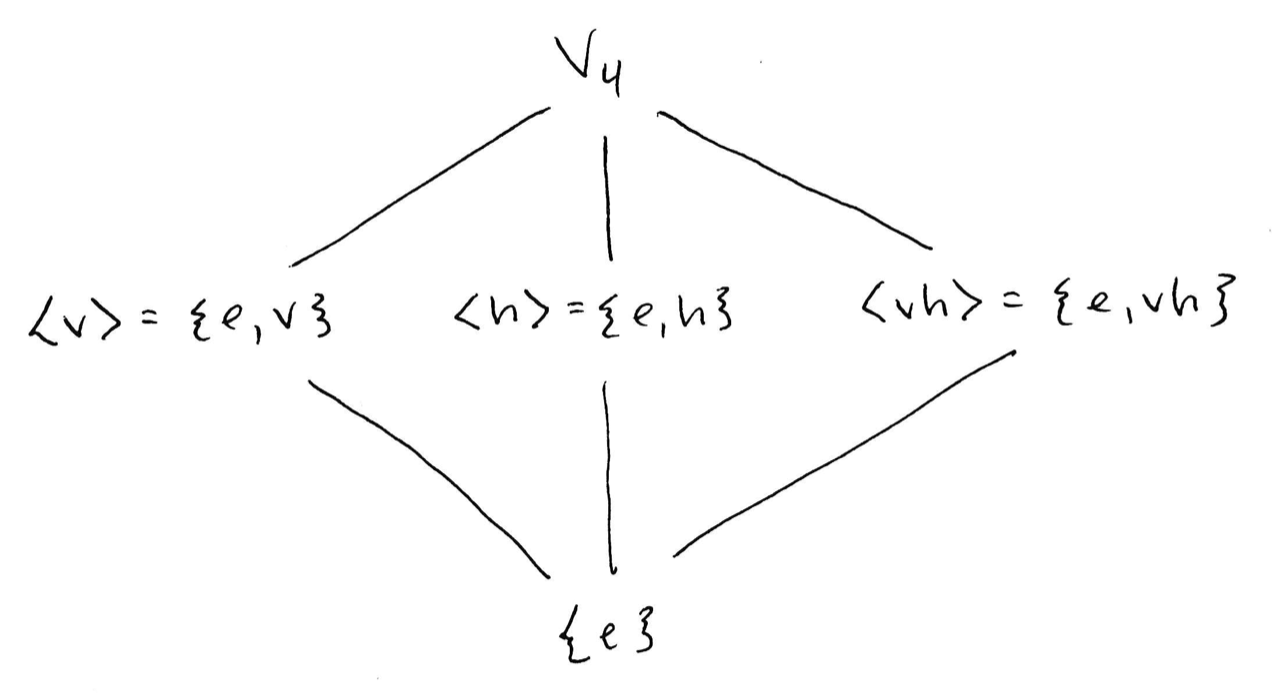 V₄
<v> = {e,v} <h> = {e,h} <vh> = {e,vh}
{e}